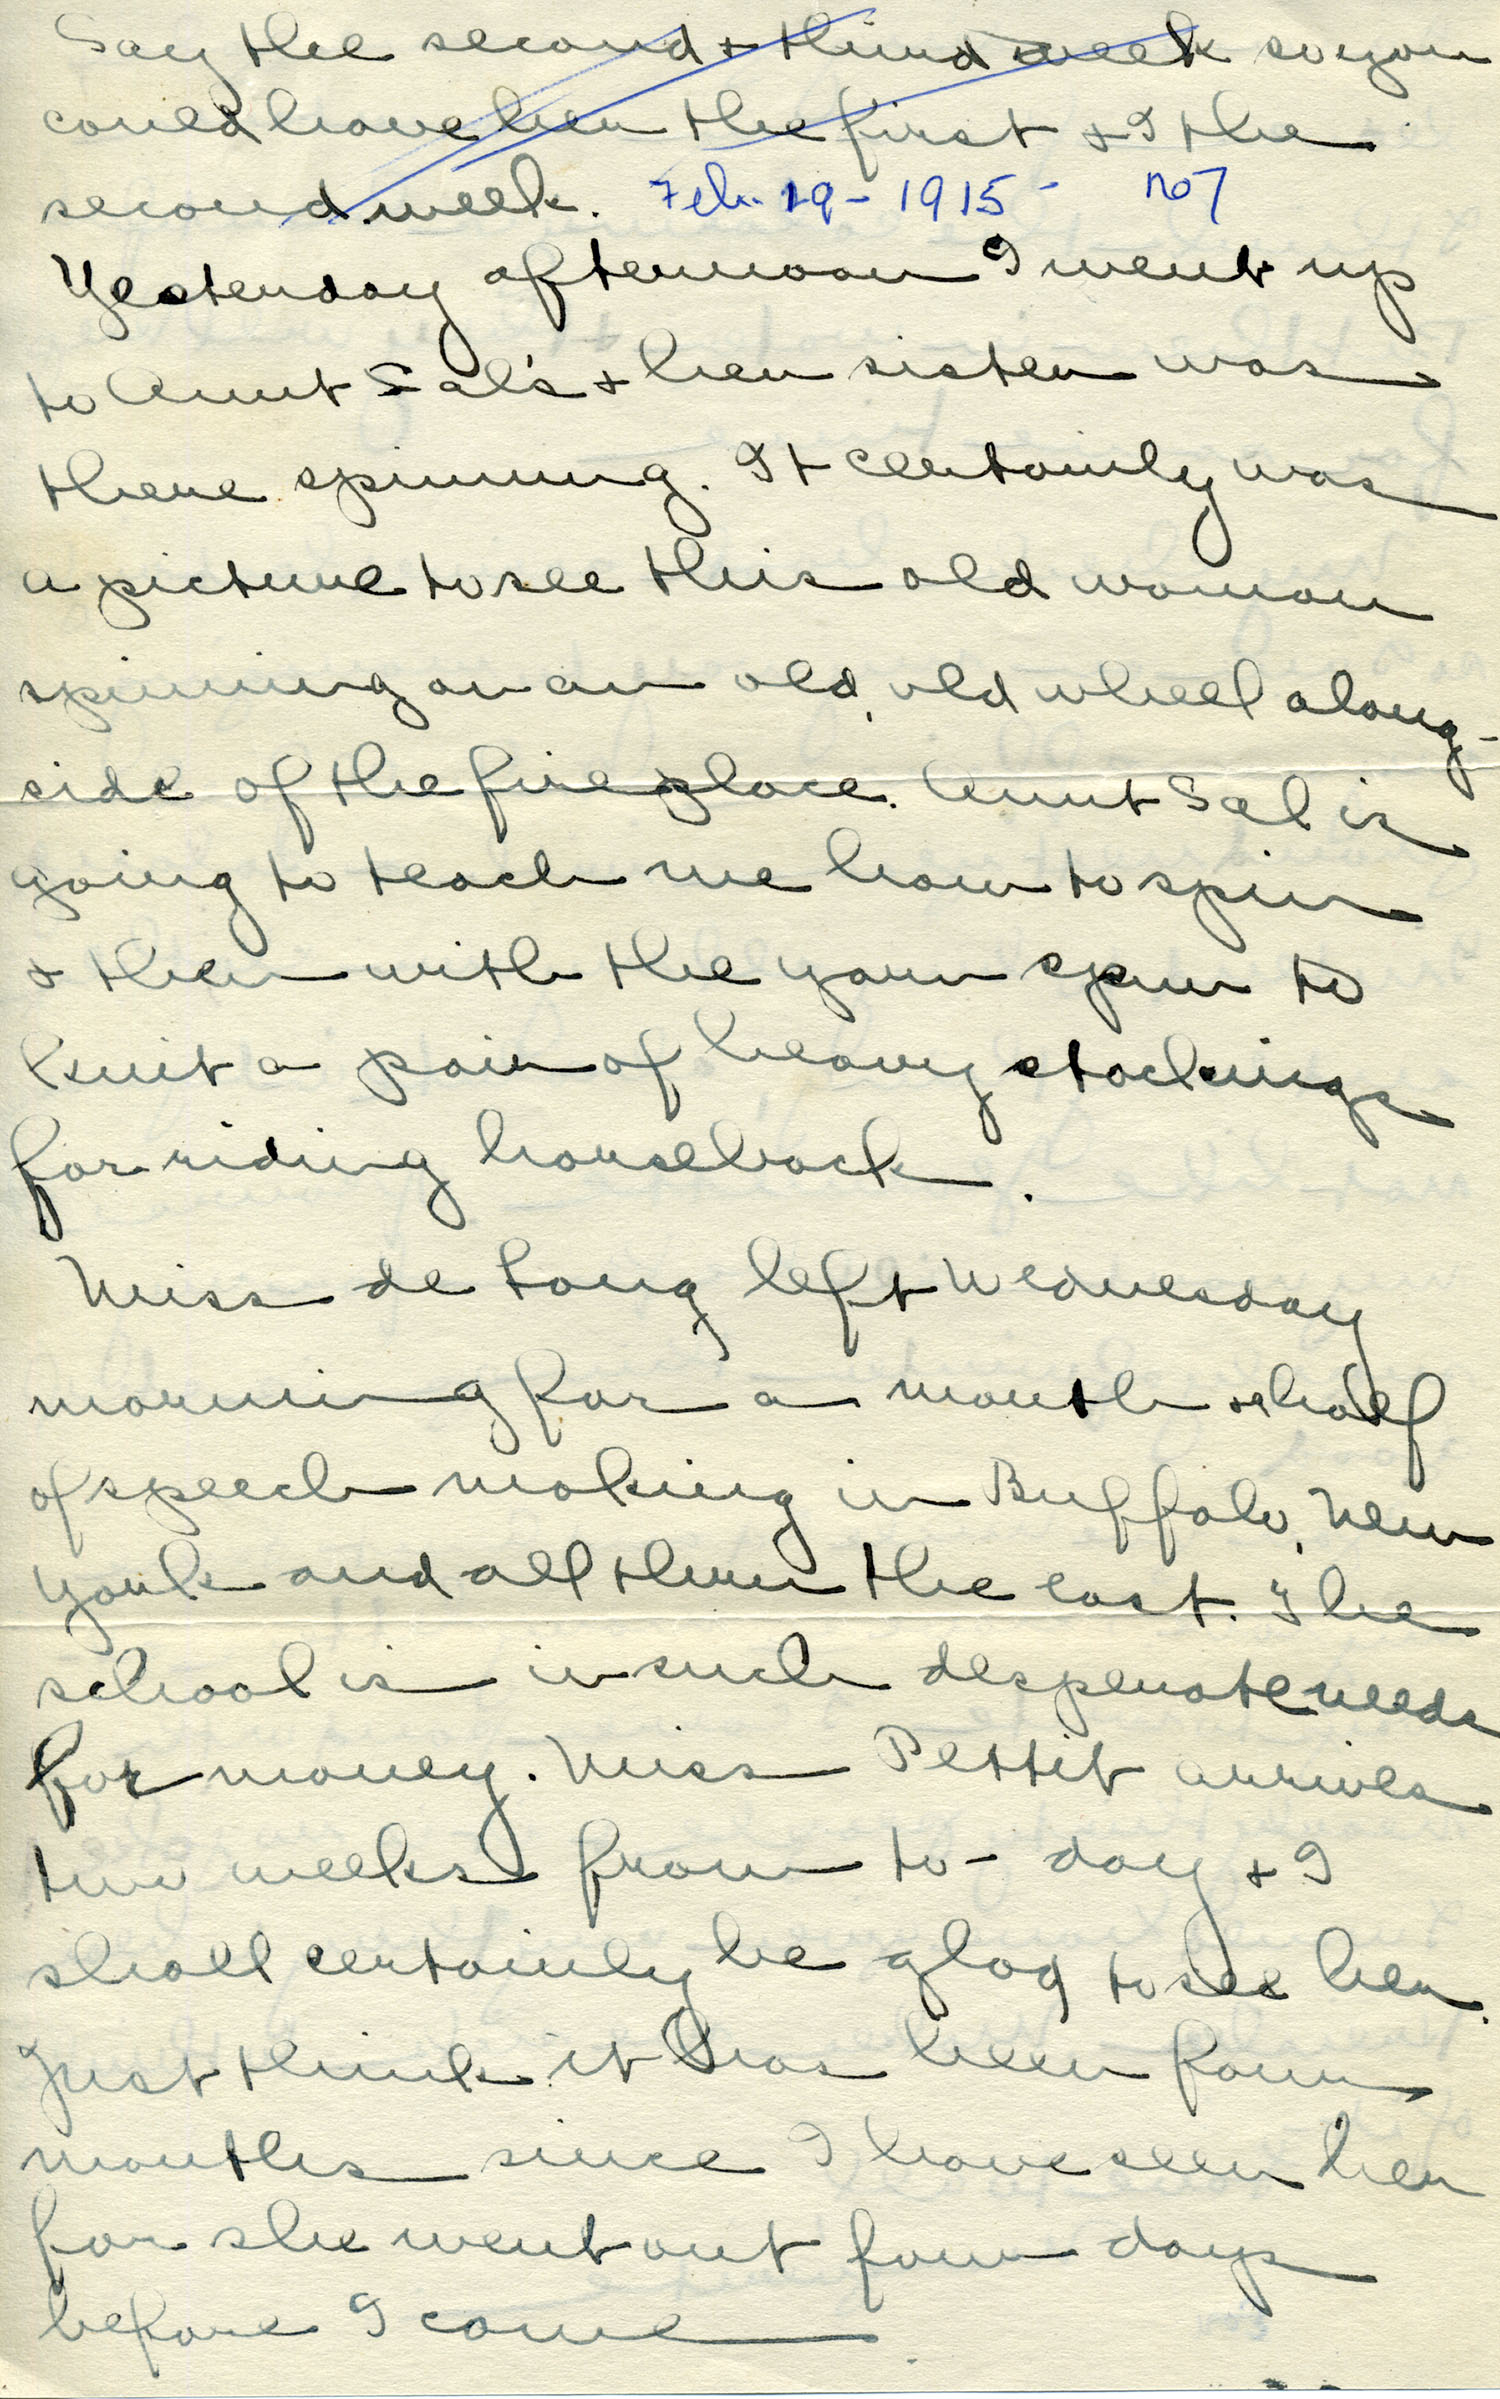 Say the second & third week so you
could have her the first & I the
second week. Feb. 19 - 1915 - no 7
Yesterday afternoon I went up
to Aunt Sal's & her sister was
there spinning. It certainly was
a picture to see this old woman
spinning on an old, old wheel along-
side of the fire place. Aunt Sal is
going to teach me how to spin
& then with the yarn spun to
knit a pair of heavy stockings
for riding horseback.
Miss de Long left Wednesday
morning for a month & a half
of speech making in Buffalo, New
York and all thru the east. The
school is in such desperate needs
for money. Miss Pettit arrives
two weeks from to-day & I
shall certainly be glad to see her.
Just think it has been four
months since I have seen her
for she went out four days
before I came